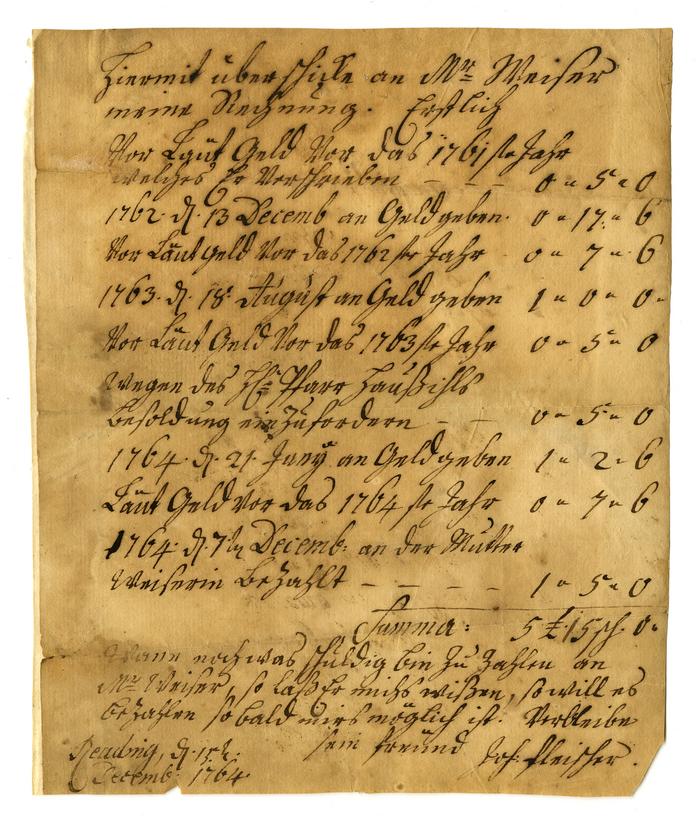 Hiermit überschicke an Mr. Weiser
meine Rechnung. Erstlich
Vor Läut Geld Vor das 1761ste Jahr
welches Er Verschrieben - - - 0 " 5 " 0
1762. d. 13 Decemb an Geld geben. 0 " 17 " 6
Vor Läut geld Vor das 1762ste Jahr 0 " 7 " 6
1763. d. 18. August an Geld geben 1 " 0 " 0 "
Vor Läut Geld Vor das 1763ste Jahr 0 " 5 " 0
Wegen des H. Pfarr Haußihls
besoldung einzufordern - - 0 " 5 " 0
1764. d. 21. Juny an Geld geben 1 " 2 " 6
Läut Geld vor das 1764ste Jahr 0 " 7 " 6
1764. d. 7 Decemb: an der Mutter
Weiserin bezahlt - - - - 1 " 5 " 0
Summa: 5 £ 15 sh. 0 "
Wann noch was schuldig bin zu zahlen an
Mr. Weiser, so laß Er michs wißen, so will es
bezahlen so bald mirs möglich ist. Verbleibe
sein freund Joh: fleischer.
Reading, d. 15t.
Decemb. 1764.